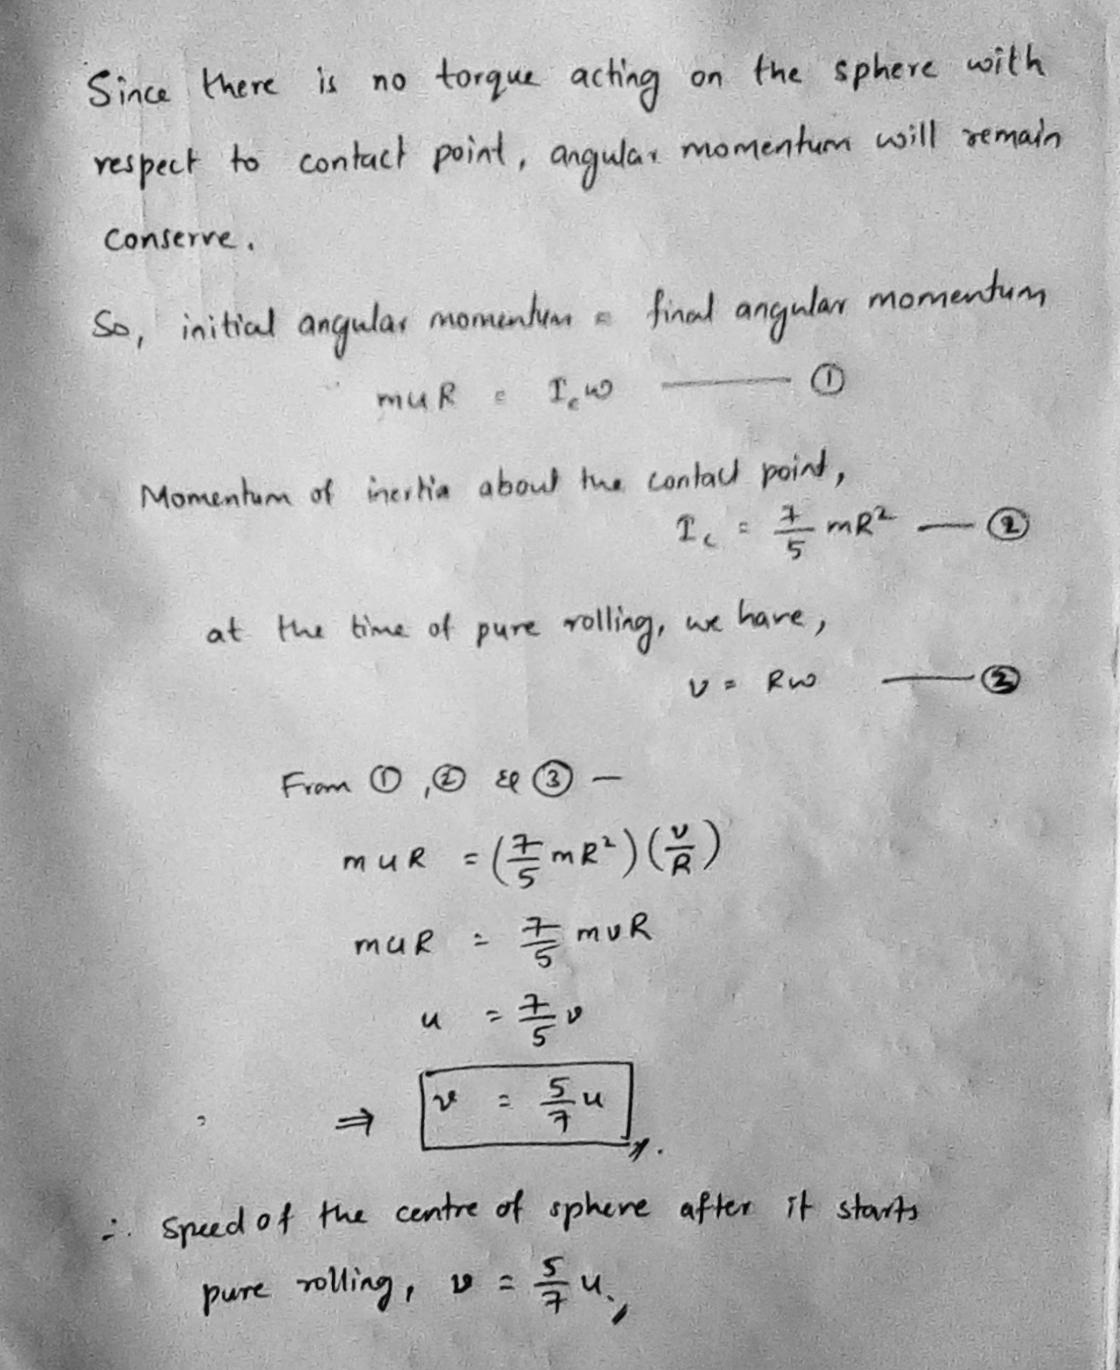 Since there is no torque acting on the sphere with
respect to contact point, angular momentum will remain
conserve.
So, initial angular momentum = final angular momentum
muR = I_c ω —— ①
Momentum of inertia about the contact point,
I_c = 7/5 mR² — ②
at the time of pure rolling, we have,
v = Rω —— ③
From ①, ② & ③ –
muR = (7/5 mR²)(v/R)
muR = 7/5 mvR
u = 7/5 v
⇒ v = 5/7 u
∴ Speed of the centre of sphere after it starts
pure rolling, v = 5/7 u.